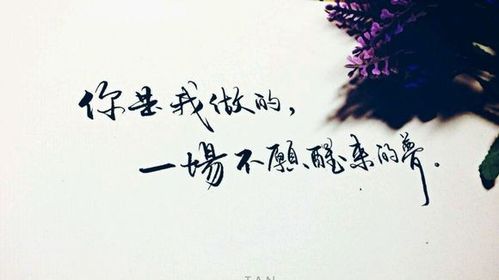 你是我做的，
一場不願醒来的夢．
TAN